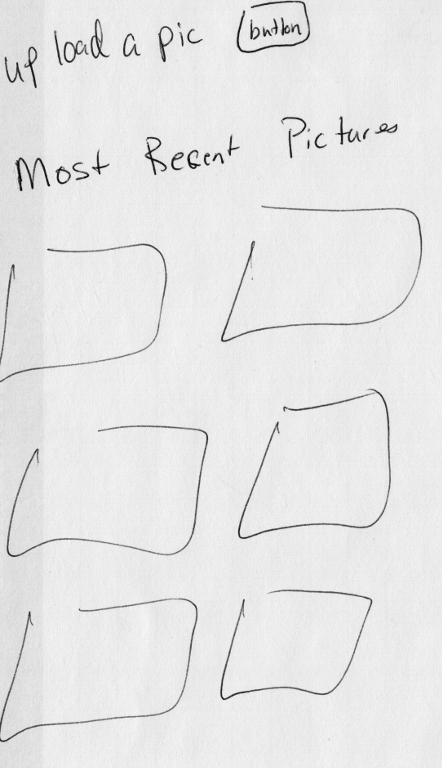 upload a pic button
Most Recent Pictures